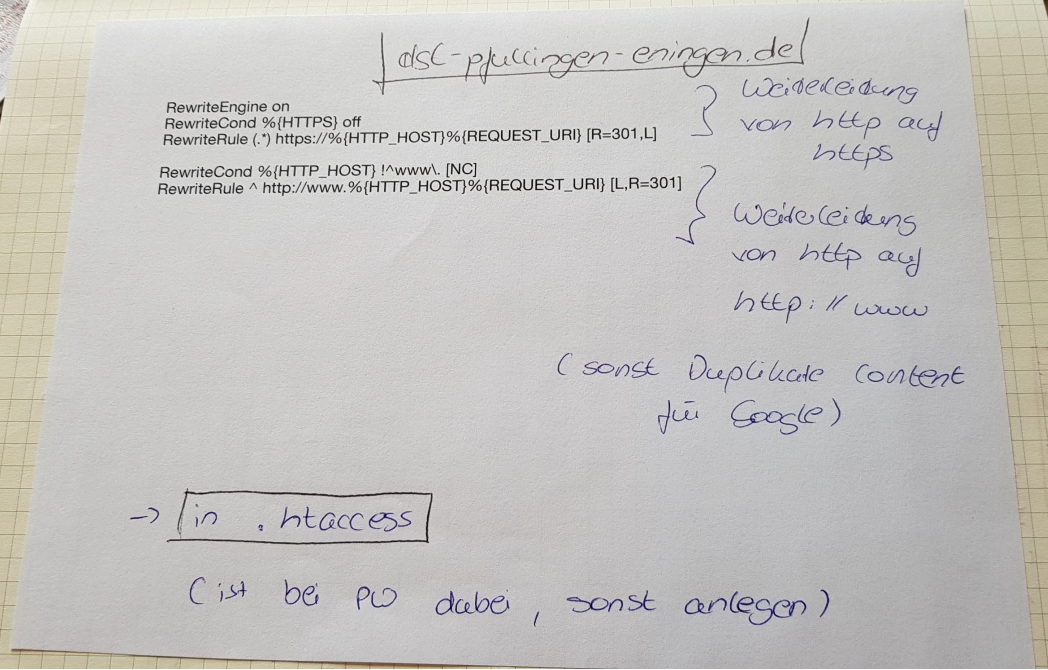 dsc-pfullingen-eningen.de
RewriteEngine on
RewriteCond %{HTTPS} off
RewriteRule (.*) https://%{HTTP_HOST}%{REQUEST_URI} [R=301,L]
Weiterleitung
von http auf
https
RewriteCond %{HTTP_HOST} !^www\. [NC]
RewriteRule ^ http://www.%{HTTP_HOST}%{REQUEST_URI} [L,R=301]
Weiterleitung
von http auf
http://www
(sonst Duplikate Content
für Google)
-> in .htaccess
(ist bei PW dabei, sonst anlegen)